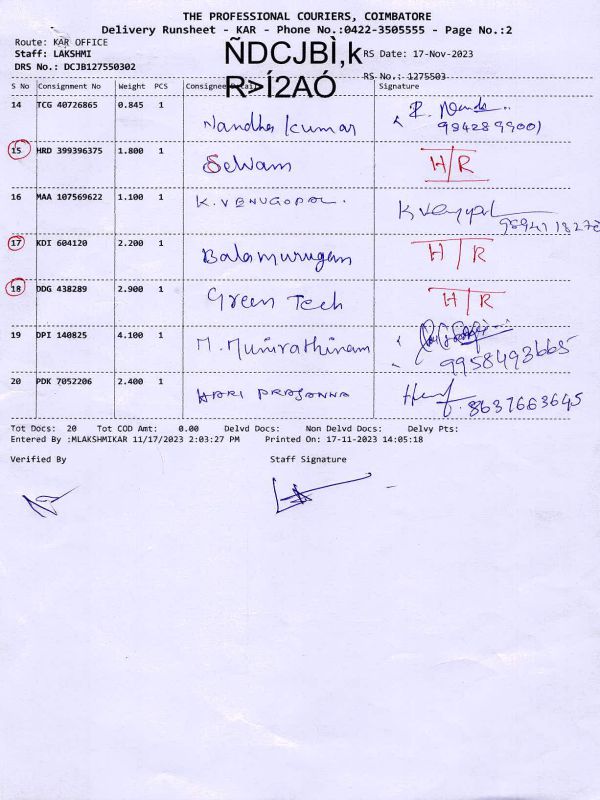 THE PROFESSIONAL COURIERS, COIMBATORE
Delivery Runsheet - KAR - Phone No.:0422-3505555 - Page No.:2
Route: KAR OFFICE
Staff: LAKSHMI
ÑDCJBÌ,k
R>Í2AÓ
RS Date: 17-Nov-2023
DRS No.: DCJB127550302
RS No.: 1275503
S No Consignment No Weight PCS Consignee Details Signature
14 TCG 40726865 0.845 1 Nandha kumar R. Nanda
9842899001
15 HRD 399396375 1.800 1 Selvam H/R
16 MAA 107569622 1.100 1 K. VENUGOPAL. K Venugopal
17 KDI 604120 2.200 1 Balamurugan H/R
18 DDG 438289 2.900 1 Green Tech H/R
19 DPI 140825 4.100 1 M. Munirathinam
9958493665
20 PDK 7052206 2.400 1 HARI PRASANNA 8637663645
Tot Docs: 20 Tot COD Amt: 0.00 Delvd Docs: Non Delvd Docs: Delvy Pts:
Entered By :MLAKSHMIKAR 11/17/2023 2:03:27 PM Printed On: 17-11-2023 14:05:18
Verified By Staff Signature